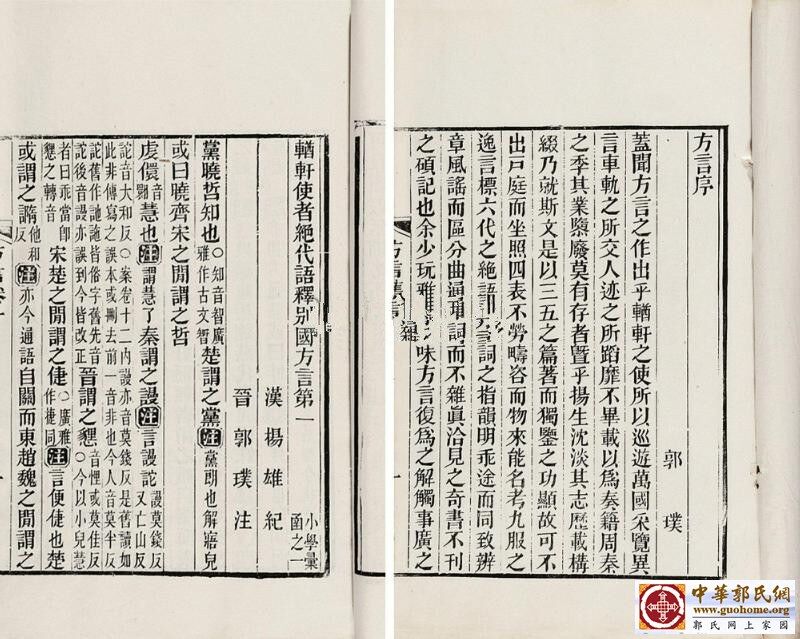 方言序
郭璞
蓋聞方言之作出乎輶軒之使所以巡遊萬國采覽異
言車軌之所交人迹之所蹈靡不畢載以爲奏籍周秦
之季其業隳廢莫有存者暨乎揚生沈淡其志歷載構
綴乃就斯文是以三五之篇著而獨鑒之功顯故可不
出戶庭而坐照四表不勞疇咨而物來能名考九服之
逸言標六代之絶語詞之指韻明乖途而同致辨
章風謠而區分曲通而不雜眞洽見之奇書不刊
之碩記也余少玩雅味方言復爲之解觸事廣之
輶軒使者絶代語釋别國方言第一 小學彙函之一
漢揚雄紀
晉郭璞注
黨曉哲知也○知音智廣雅作古文智楚謂之黨注黨朗也解寤皃
或曰曉齊宋之閒謂之哲
虔儇音翾慧也注謂慧了秦謂之謾注言謾詑謾莫錢反又亡山反
詑音大和反○案卷十二內謾亦音莫錢反是舊讀如
此非傳寫之誤本或刪去前一音非也今人音莫半反
詑後音誤亦誤到今皆改正晉謂之㦟音悝或莫佳反○今以小兒慧
者曰乖當卽㦟之轉音宋楚之閒謂之倢○廣雅作捷同注言便倢也楚
或謂之䜏他和反注亦今通語自關而東趙魏之閒謂之
中華郭氏網
www.guohome.org
郭氏网上家园